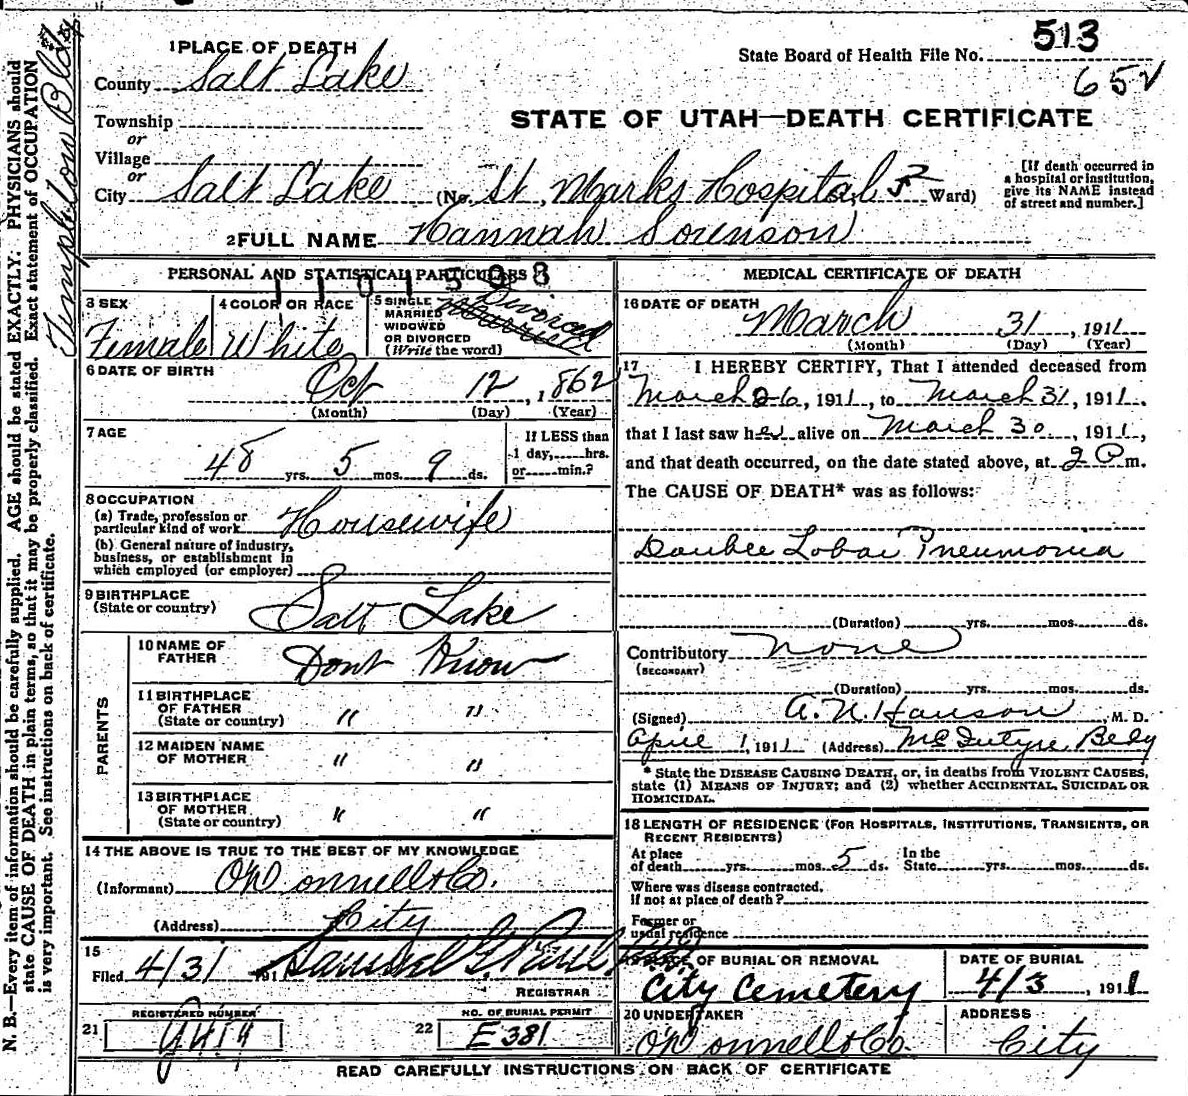 513
State Board of Health File No.
652
1 PLACE OF DEATH
County Salt Lake
STATE OF UTAH—DEATH CERTIFICATE
Township
or
Village
or
City Salt Lake (No. St. Marks Hospital 52 Ward)
[If death occurred in
a hospital or institution,
give its NAME instead
of street and number.]
2 FULL NAME Hannah Sorenson
PERSONAL AND STATISTICAL PARTICULARS
1101508
3 SEX
Female
4 COLOR OR RACE
White
5 SINGLE
MARRIED
WIDOWED
OR DIVORCED
(Write the word)
Divorced
Married
6 DATE OF BIRTH
Oct 12, 1862
(Month) (Day) (Year)
7 AGE
48 yrs. 5 mos. 9 ds.
If LESS than
1 day, hrs.
or min.?
8 OCCUPATION
(a) Trade, profession or
particular kind of work Housewife
(b) General nature of industry,
business, or establishment in
which employed (or employer)
9 BIRTHPLACE
(State or country) Salt Lake
PARENTS
10 NAME OF
FATHER Dont Know
11 BIRTHPLACE
OF FATHER
(State or country) " "
12 MAIDEN NAME
OF MOTHER " "
13 BIRTHPLACE
OF MOTHER
(State or country) " "
14 THE ABOVE IS TRUE TO THE BEST OF MY KNOWLEDGE
(Informant) O'Donnell & Co.
(Address) City
15
Filed 4/31 191 Samuel G. Paul
REGISTRAR
21 REGISTERED NUMBER
22 NO. OF BURIAL PERMIT
E 381
MEDICAL CERTIFICATE OF DEATH
16 DATE OF DEATH
March 31, 1911
(Month) (Day) (Year)
17 I HEREBY CERTIFY, That I attended deceased from
March 26, 1911, to March 31, 1911,
that I last saw her alive on March 30, 1911,
and that death occurred, on the date stated above, at 2 P m.
The CAUSE OF DEATH* was as follows:
Double Lobar Pneumonia
(Duration) yrs. mos. ds.
Contributory none
(SECONDARY)
(Duration) yrs. mos. ds.
(Signed) A. N. Hanson, M. D.
April 1, 1911 (Address) McIntyre Bldg
* State the DISEASE CAUSING DEATH, or, in deaths from VIOLENT CAUSES,
state (1) MEANS OF INJURY; and (2) whether ACCIDENTAL, SUICIDAL OR
HOMICIDAL.
18 LENGTH OF RESIDENCE (FOR HOSPITALS, INSTITUTIONS, TRANSIENTS, OR
RECENT RESIDENTS)
At place
of death yrs. mos. 5 ds. In the
State yrs. mos. ds.
Where was disease contracted,
if not at place of death?
Former or
usual residence
19 PLACE OF BURIAL OR REMOVAL
City Cemetery
DATE OF BURIAL
4/3, 1911
20 UNDERTAKER
O'Donnell & Co.
ADDRESS
City
READ CAREFULLY INSTRUCTIONS ON BACK OF CERTIFICATE
N. B.—Every item of information should be carefully supplied. AGE should be stated EXACTLY. PHYSICIANS should
state CAUSE OF DEATH in plain terms, so that it may be properly classified. Exact statement of OCCUPATION
is very important. See instructions on back of certificate.